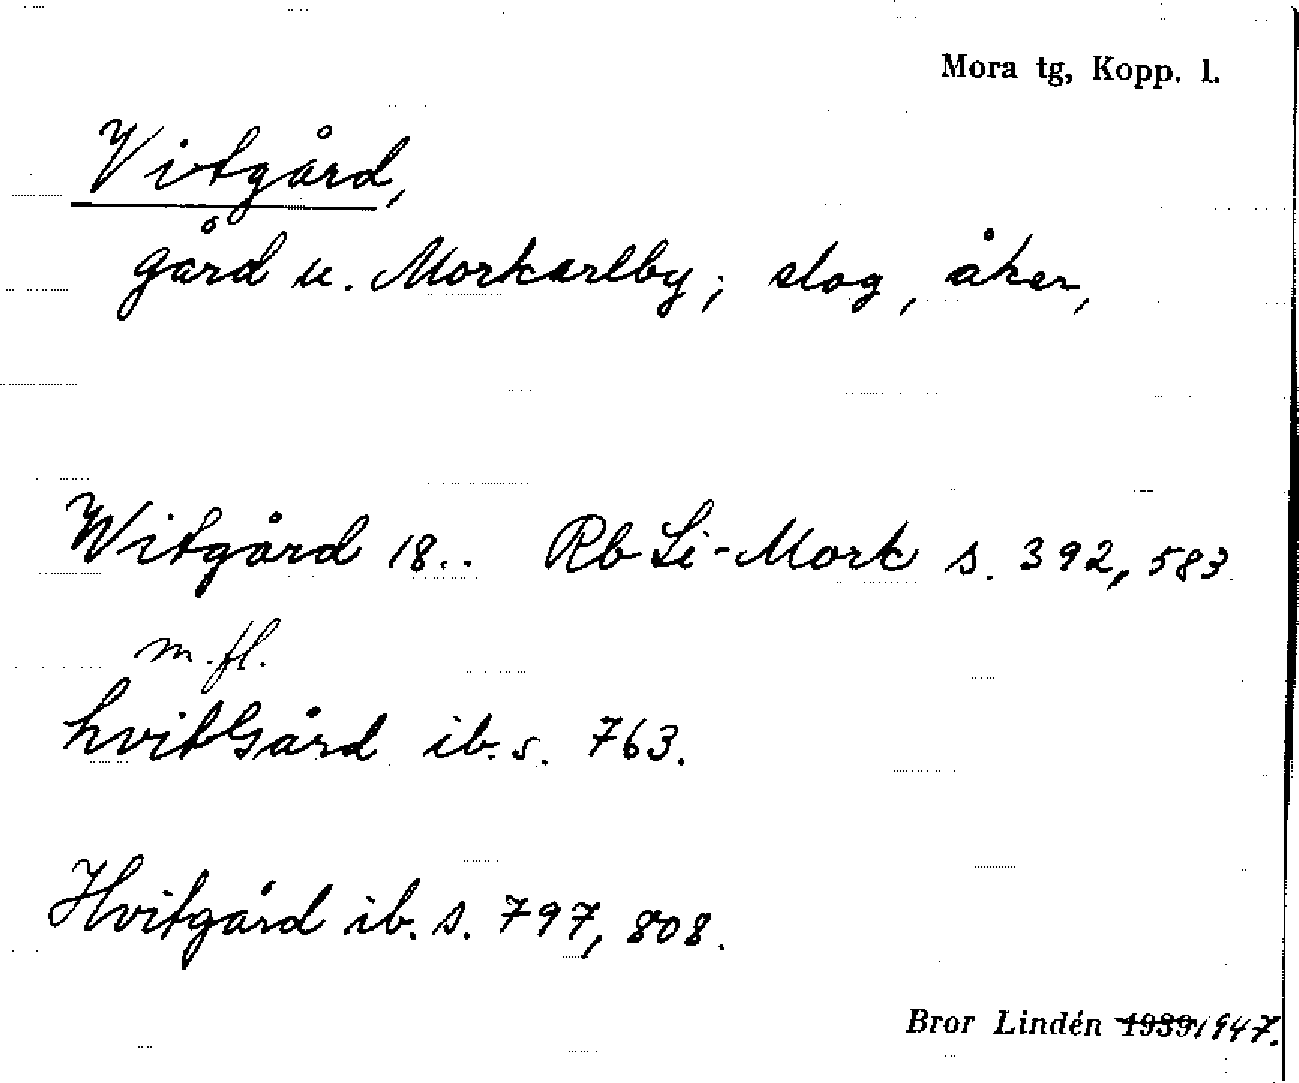 Mora tg, Kopp. l.
Vitgård,
gård u. Morkarlby; slog, åker,
Witgård 18.. Rb Li-Mork s. 392, 583
m. fl.
hvitGård ib. s. 763.
Hvitgård ib. s. 797, 808.
Bror Lindén 1939 1947.